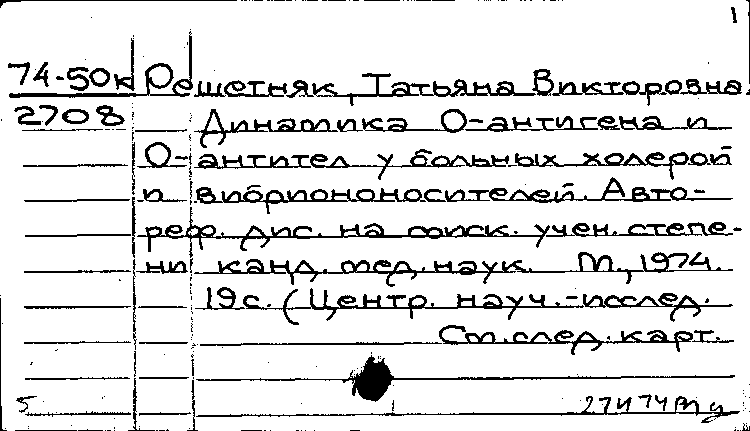 1
74-50к Решетняк, Татьяна Викторовна.
2708 Динамика О-антигена и
О-антител у больных холерой
и вибриононосителей. Авто-
реф. дис. на соиск. учен. степе-
ни канд. мед. наук. М., 1974.
19с. (Центр. науч.-исслед.
См. след. карт.
5